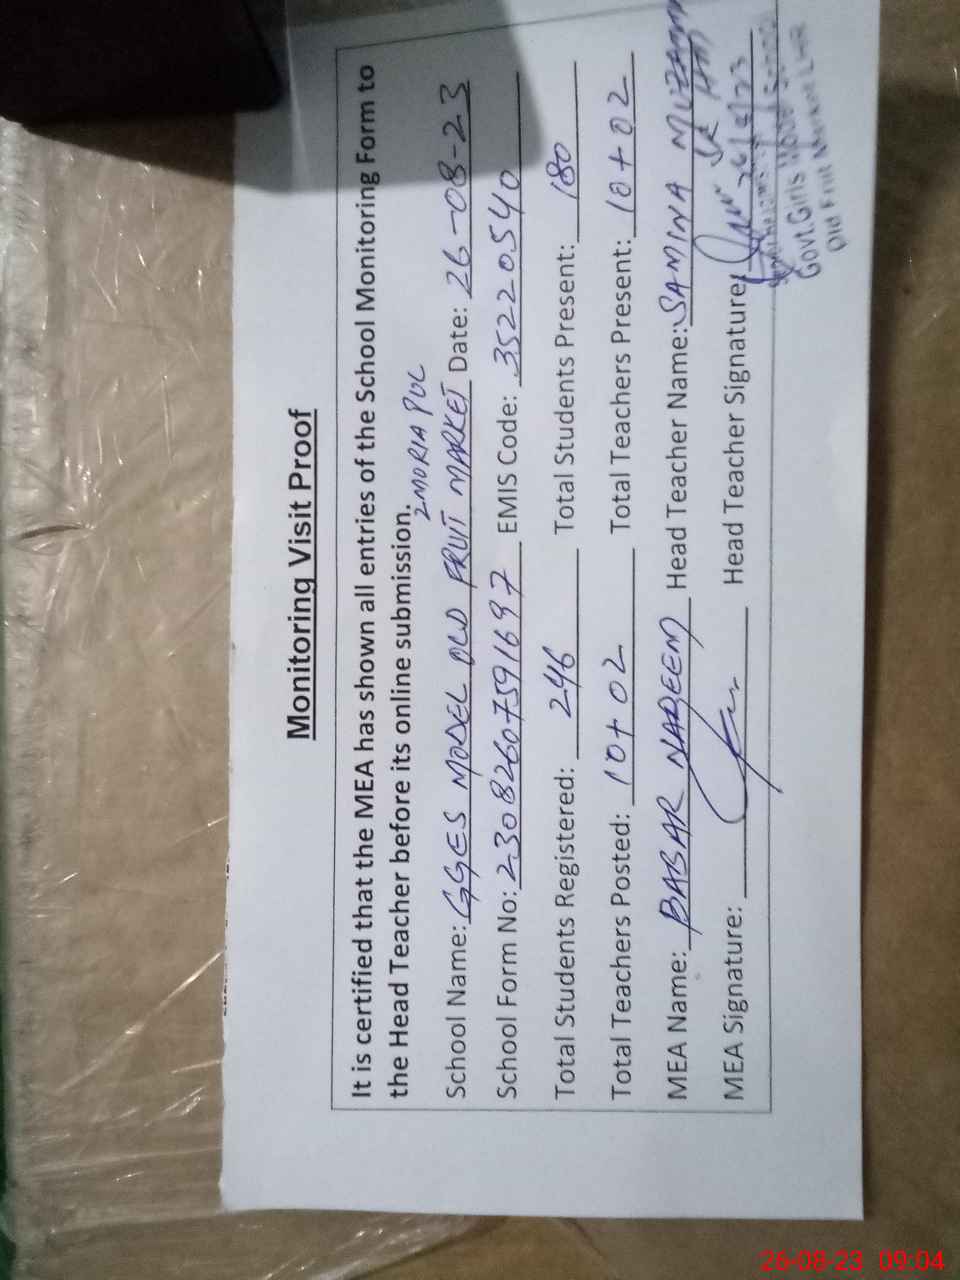 Monitoring Visit Proof
It is certified that the MEA has shown all entries of the School Monitoring Form to
the Head Teacher before its online submission.
2MORIA PUL
School Name: GGES MODEL OLD FRUIT MARKET Date: 26-08-23
School Form No: 23082607591697 EMIS Code: 35220540
Total Students Registered: 246 Total Students Present: 180
Total Teachers Posted: 10+02 Total Teachers Present: 10+02
MEA Name: BABAR NADEEM Head Teacher Name: SAMINA
MEA Signature: Head Teacher Signature:
26/8/23
Govt.Girls Model
Old Fruit Market LHR
26-08-23 09:04